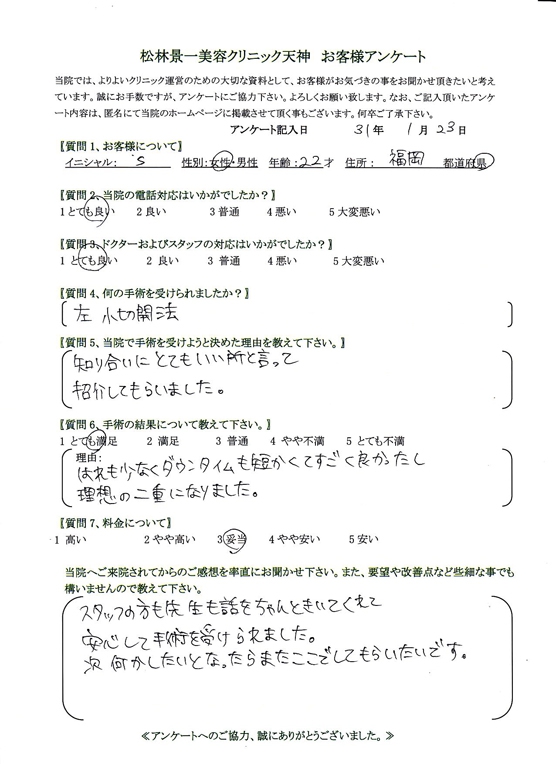 松林景一美容クリニック天神　お客様アンケート
当院では、よりよいクリニック運営のための大切な資料として、お客様がお気づきの事をお聞かせ頂きたいと考え
ています。誠にお手数ですが、アンケートにご協力下さい。よろしくお願い致します。なお、ご記入頂いたアンケ
ート内容は、匿名にて当院のホームページに掲載させて頂く事もございます。何卒ご了承下さい。
アンケート記入日　31年　1月23日
〖質問1、お客様について〗
イニシャル：　S　性別：女性・男性　年齢：22才　住所：　福岡　都道府県
〖質問2、当院の電話対応はいかがでしたか？〗
1 とても良い　2 良い　3 普通　4 悪い　5 大変悪い
〖質問3、ドクターおよびスタッフの対応はいかがでしたか？〗
1 とても良い　2 良い　3 普通　4 悪い　5 大変悪い
〖質問4、何の手術を受けられましたか？〗
左 小切開法
〖質問5、当院で手術を受けようと決めた理由を教えて下さい。〗
知り合いにとてもいい所と言って
紹介してもらいました。
〖質問6、手術の結果について教えて下さい。〗
1 とても満足　2 満足　3 普通　4 やや不満　5 とても不満
理由：
はれも少なくダウンタイムも短かくてすごく良かったし
理想の二重になりました。
〖質問7、料金について〗
1 高い　2 やや高い　3 妥当　4 やや安い　5 安い
当院へご来院されてからのご感想を率直にお聞かせ下さい。また、要望や改善点など些細な事でも
構いませんので教えて下さい。
スタッフの方も先生も話をちゃんときいてくれて
安心して手術を受けられました。
次 何かしたいとなったらまたここでしてもらいたいです。
≪アンケートへのご協力、誠にありがとうございました。≫